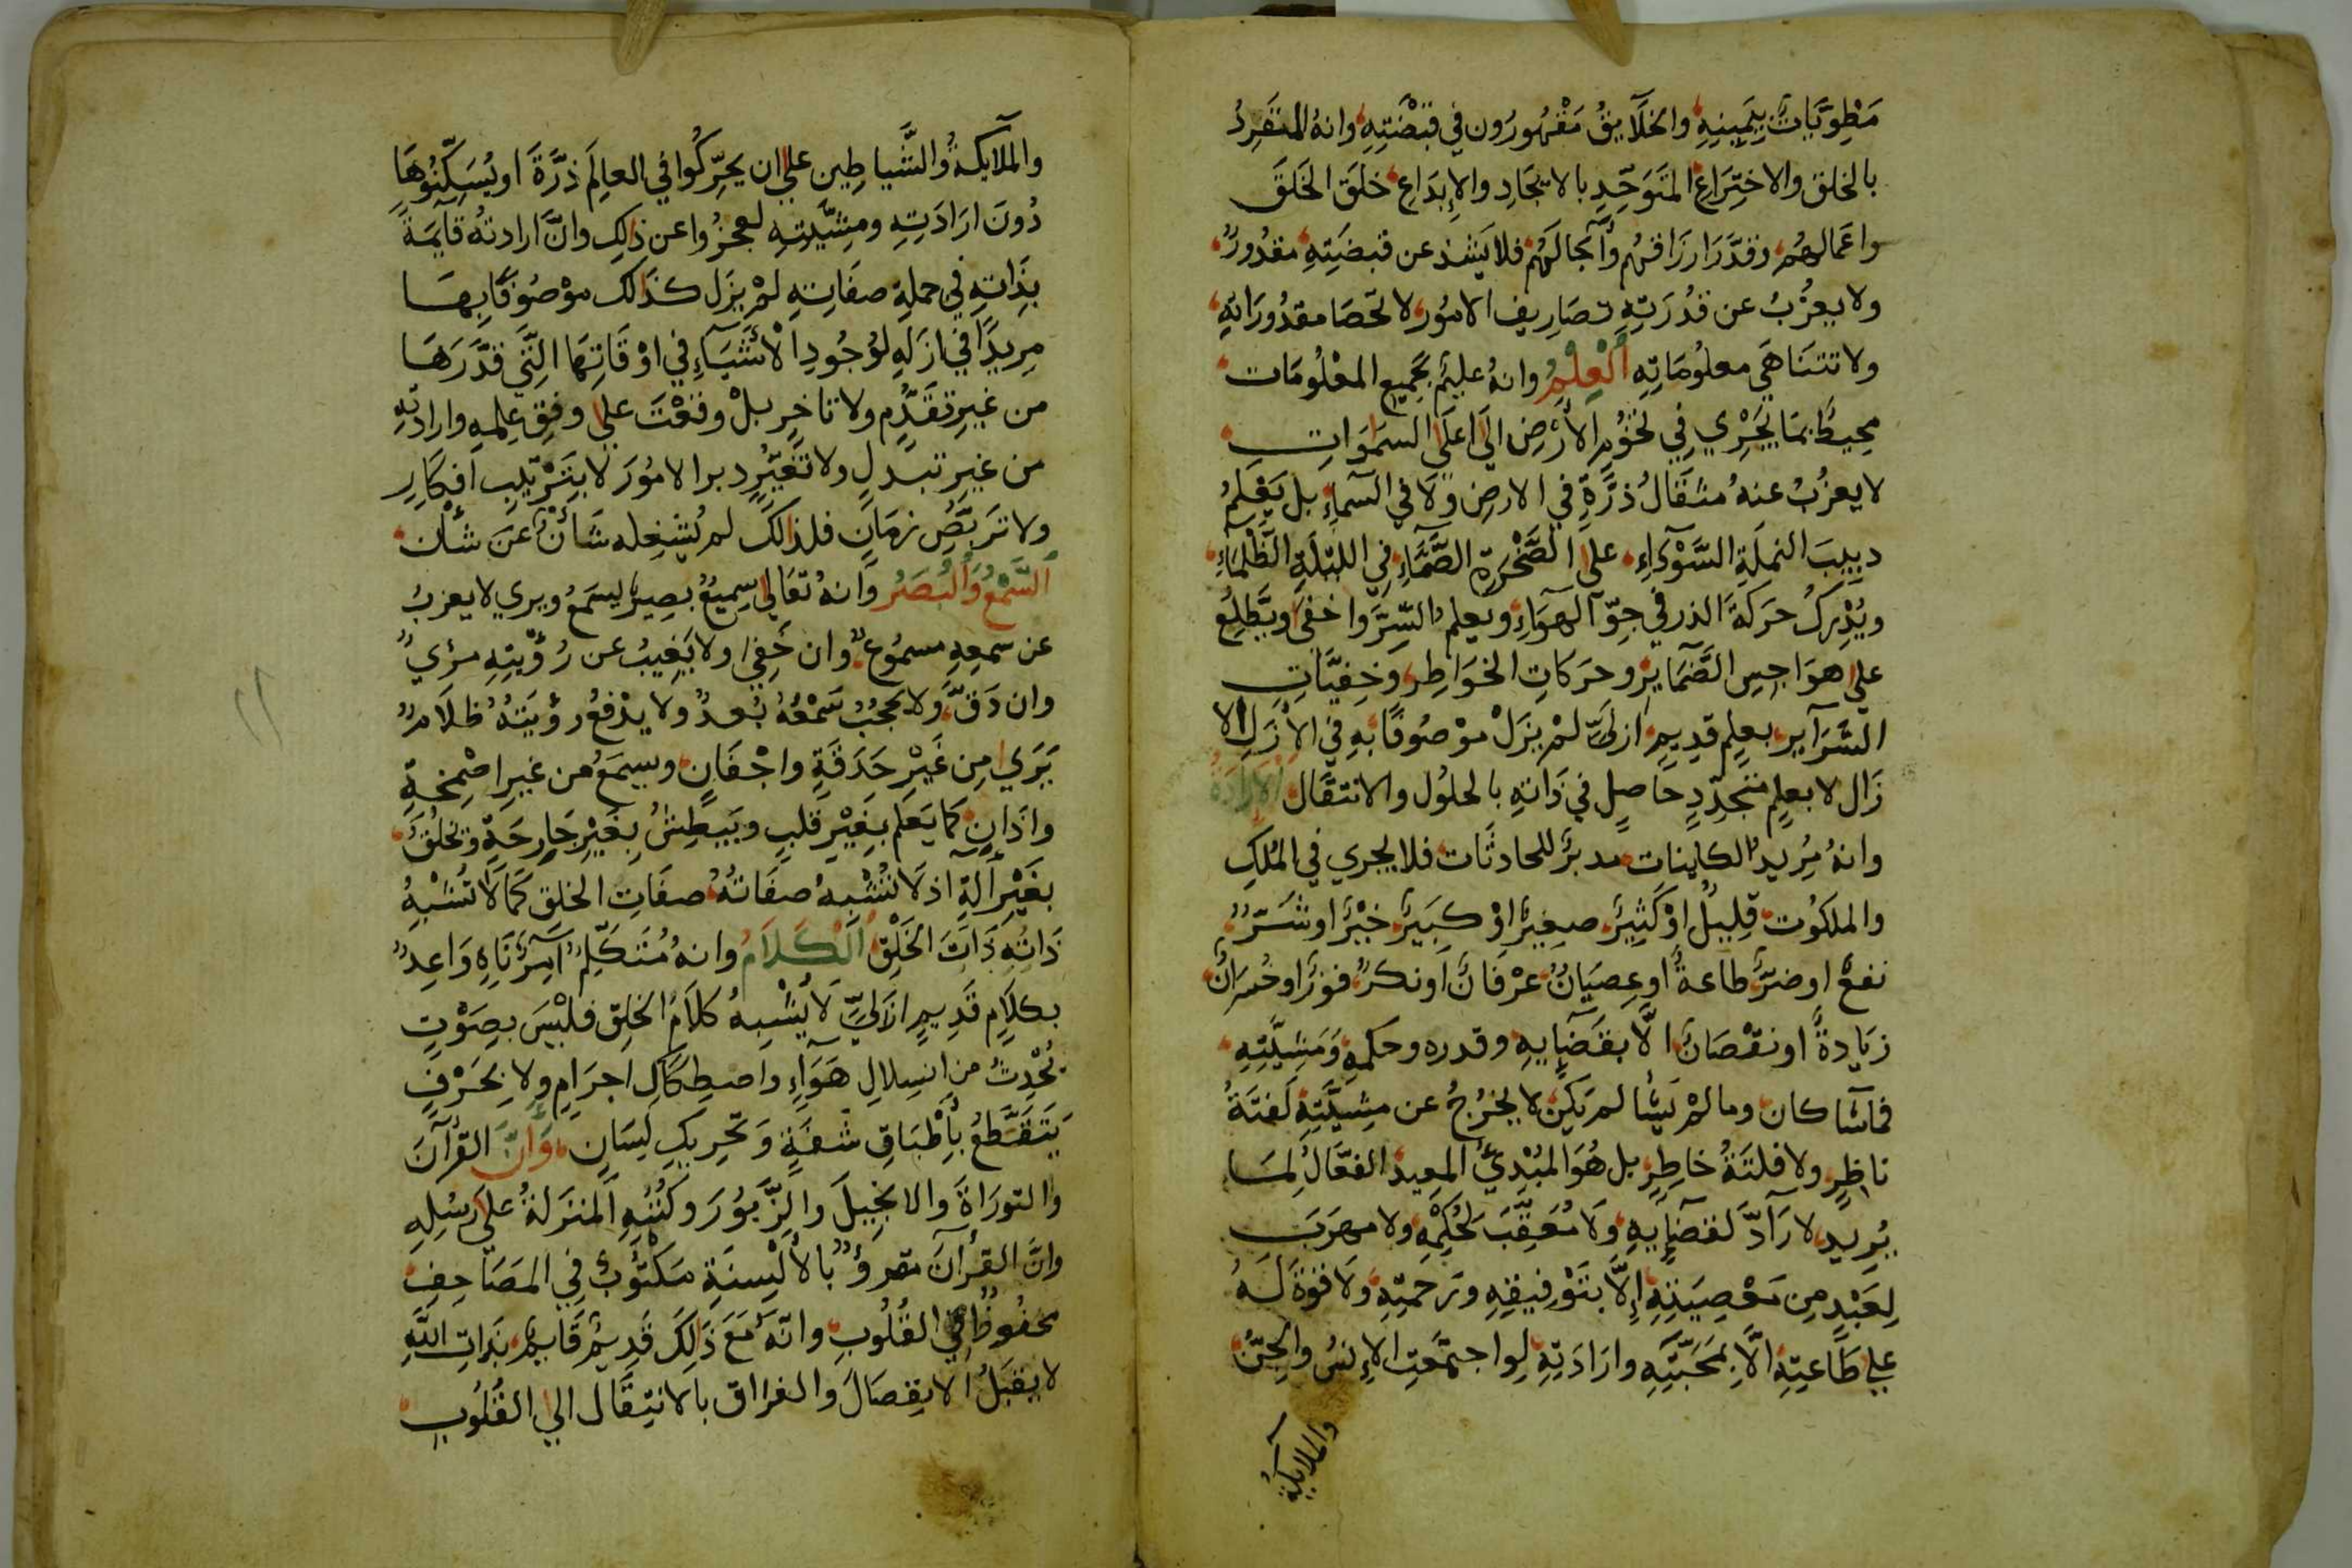 مَطْوِيَّاتٌ بِيَمِينِهِ والخلَآيقُ مَقْهُورُون في قبْضَتِهِ وانهُ المتفَرِدُ
بالخلق والاختِرَاعِ المتَوَحِّدِ بالايجَادِ والإِبدَاعِ خلَقَ الخَلقَ
واعَمالهُم وقدَّرَ ارزَاقهُم وَآجَالَهُم فلا يَشذ عن قبضَتِهِ مقدُورٌ
ولا يعزُبُ عن قدُرَتِهِ تصَارِيف الامُور لا تحصَا مقدُورَاتهِ
ولا تتنَاهَي معلُومَاتِه اَلْعِلْمُ وانهُ عليمٌ بجَمِيعِ المعْلُومَات
محِيطٌ بمَا يَجْرِي فِي تخُومِ الأرْضِ الَي اعلَي السمَوَاتِ
لا يعزُبُ عنهُ مثقَالُ ذرَّةٍ في الارضِ وَلَا في السمآءِ بل يَعْلمُ
دبيبَ النملَةِ السَّوْدَآءِ علي الصَّخْرَةِ الصَّمَّآءِ في الليْلَةِ الظَّلْمآءِ
ويُدْرِكُ حرَكَةَ الذر في جوِّ الهوَآءِ ويعلم السِّرَّ واخفي ويَطَّلِعُ
علي هوَاجِسِ الضَّمَايرِ وحرَكاتِ الخوَاطِر وخفِيَّاتِ
السَّرَآيرِ بعِلمٍ قدِيمٍ ازليٍّ لمْ يزَلْ موْصُوفًا بهِ في الأزَلِ لا
زَال لا بعِلمٍ متجدِّدٍ حَاصِلٍ في ذَاتِهِ بالحلُول والانتقَال الْاِرَادَةُ
وانهُ مُرِيدٌ الكاينات مدبرٌ للحادثَات فلا يجري في الملكِ
والملكُوت قلِيلٌ اوْ كثِيرٌ صغِيرٌ اوْ كبيرٌ خيْرٌ او شرٌّ
نفعٌ او ضرٌّ طاعةٌ او عِصيَانٌ عرْفَانٌ اَو نكرٌ فوزٌ او خُسرَانٌ
زيَادةٌ او نقْصَانٌ الَّا بقَضَايِهِ وقدره وحكمِهِ وَمَشِيَّتِهِ
فما شآ كان وما لمْ يَشا لم يَكن لا يخرُجُ عن مشِيَّتِهِ لَفتَةُ
ناظِرٍ ولا فلتَةُ خاطِرٍ بل هُوَ المبْدِيُ المعيد الفعَّالُ لمَا
يُريد لا رَآدَّ لقضَآيهِ وَلَا مُعَقِّبَ لحُكمِهِ ولا مهرَبَ
لِعَبْدٍ مِن معْصِيَتِهِ إلَّا بتَوْفِيقِهِ ورَحمتِهِ وَلَا قوةَ لَهُ
علي طَاعتِهِ الَّا بمَحَبَّتِهِ وارَادَتِهِ لَوِ اجتمَعتِ الإِنسُ والجنُّ
والملايكةُ
والملآيكةُ والشَّياطِين علي ان يحَرِّكُوا في العالَم ذرَّةً او يُسَكِّنُوهَا
دُونَ ارَادَتِهِ ومشِيَّتِهِ لعجزُوا عن ذلِكِ وانَّ ارادتهُ قآيمَةٌ
بذَاتِهِ في جملةِ صفَاتِهِ لمْ يزَل كذَالك موْصُوفًا بِهَا
مريدًا في ازلهِ لوُجُودِ الأشيَآءِ في اوْقَاتِهَا الَّتي قدَّرَهَا
من غيرِ تقدُّمٍ ولا تاخرٍ بلْ وقعْتَ علي وفقِ علِمهِ وارادَتِهِ
من غيرِ تبدلٍ ولا تغيُّرٍ دبر الامُورَ لا بتَرْتيبِ افكَارٍ
ولا ترَبُّصِ زمَانٍ فلذالكَ لم يُشْغِله شَانٌ عن شأنٍ
اَلسَّمْعُ وَالْبَصَرُ وَانهُ تعَالي سمِيعٌ بصِيرٌ يسمَعُ ويري لا يعزبُ
عن سمعِهِ مسمُوعٌ وان خَفِيَ ولا يَغِيبُ عن رُؤْيتِهِ مرئيٌ
وان دَقَّ وَلا يحجُبُ سَمْعَهُ بُعدٌ ولا يدْفعُ رؤيَتَهُ ظلَامٌ
يَرَي مِن غَيْرِ حَدَقَةٍ واجْفَانٍ ويسمَعُ من غيرِ اصْمِخةٍ
واذَانٍ كمَا يَعلَم بغَيْرِ قلبٍ ويَبطِشُ بغَيْرِ جَارِحَةٍ وتخلُقُ
بغَيْرِ آلةٍ اذ لَا تُشْبِهُ صفَاتُهُ صفَات الخلق كمَا لَا تُشْبِهُ
ذَاتهِ ذَاتَ الخَلْقِ اَلْكَلَامُ وانهُ مُتَكَلِّمٌ آمِرٌ نَاهٍ وَاعِدٌ
بكلَامٍ قَدِيمٍ ازَليٍّ لَا يُشْبِهُ كلَامُ الخلِق فليْسَ بصَوْتٍ
يُحْدِثُ من انسِلالِ هَوَآءٍ واصطِكَاكِ اجرَامٍ ولا بحَرْفٍ
يَتَقَطَّعُ بأِطْبَاقِ شفَةٍ وَتحرِيكِ لِسَانٍ وَانَّ القرْآنَ
والتورَاةَ والانجِيلَ والزَّبُورَ وَكُتُبهِ المنزَلةُ علَي رسُلِهِ
وانَّ القرآنَ مقروٌ بالأَلْسِنَةِ مَكْتُوبٌ فِي المصَاحِفِ
محفُوظٌ فِي القُلُوبِ وانَّهُ معَ ذَلِكَ قَدِيمٌ قَايمٌ بذَاتِ اللَّهِ
لا يقبَلُ الانفِصَالَ والفرَاق بالانتِقَال الي القُلُوبِ